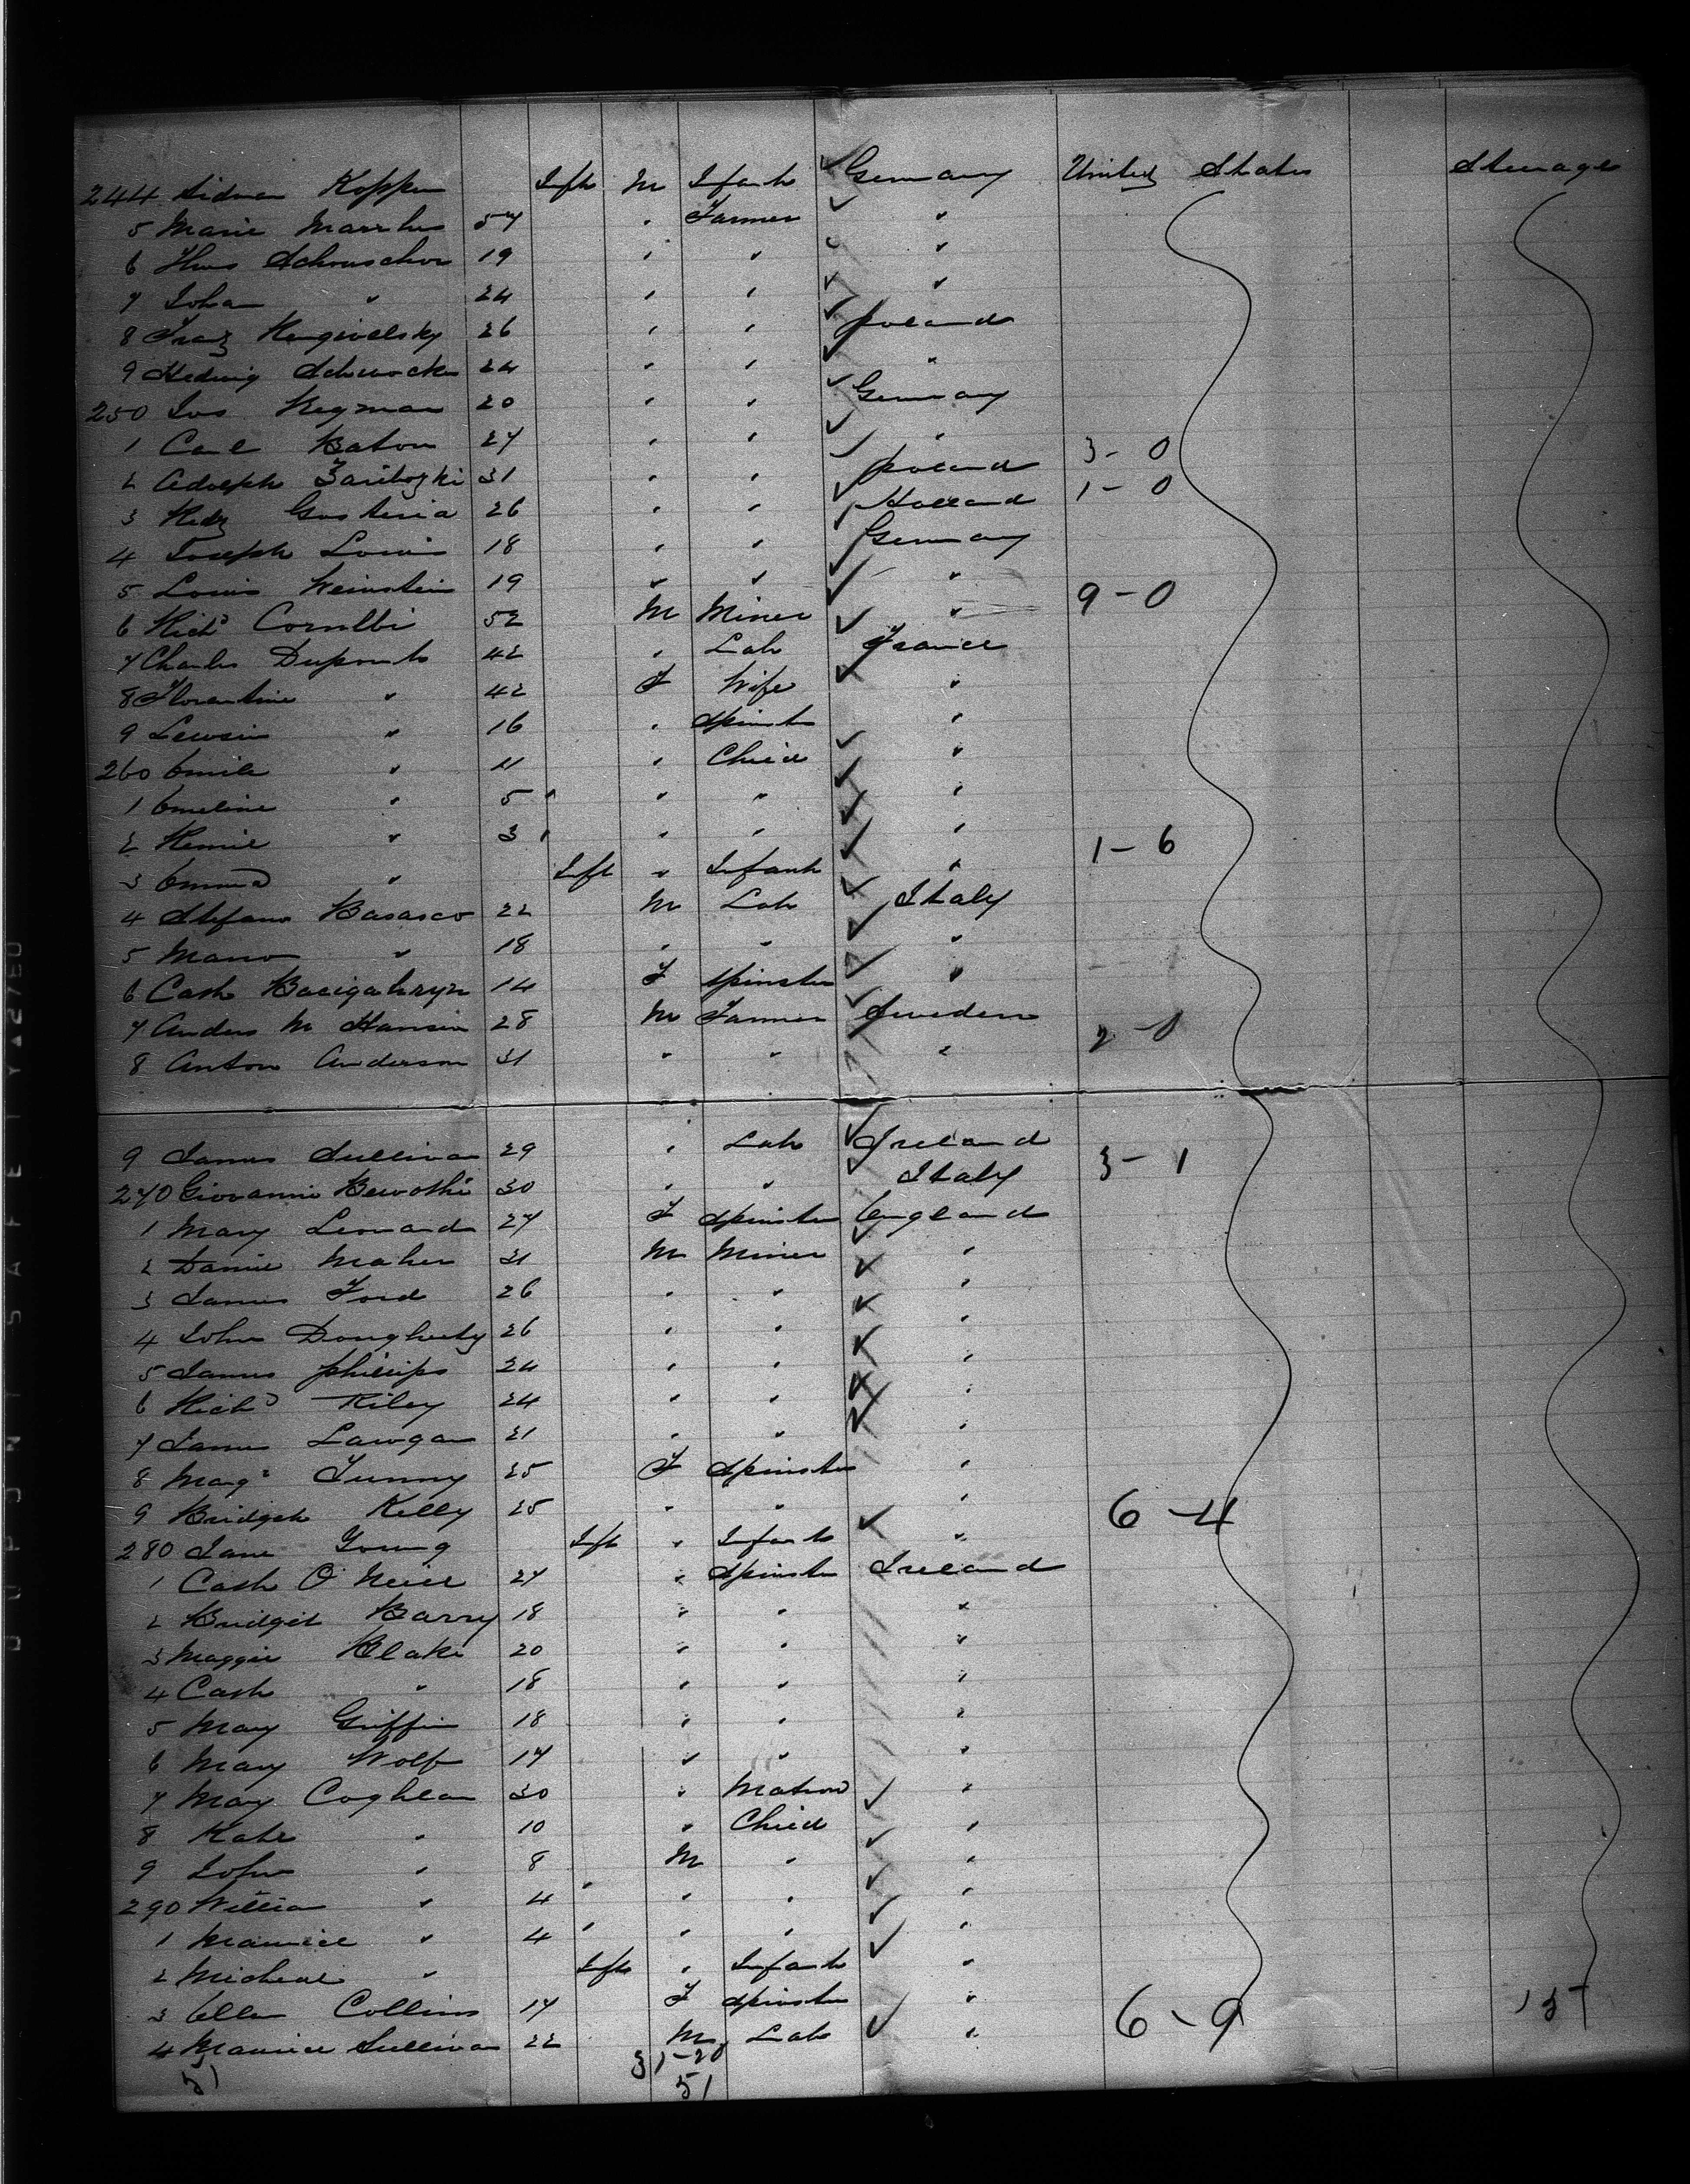 244 Sidman Koppen Inft M Infant Germany United States Steerage
5 Marie Marrhu 57 " Farmer "
6 Thos Schouschou 19 " " "
7 Joha " 24 " " "
8 Franz 26 " " Poland
9 Hedwig Schwocke 24 " " "
250 Jos Hegman 20 " " Germany
1 Carl Baton 27 " " " 3-0
2 Adolph Zaribozki 31 " " Poland 1-0
3 Gusteria 26 " " Holland
4 Joseph Louis 18 " " Germany
5 Louis Weinstein 19 " " " 9-0
6 Richd Cornlbi 52 M Miner "
7 Charles Duponts 42 " Lab France
8 Florentine " 42 F Wife "
9 " 16 " Spinst "
260 Emile " 11 " Child "
1 Emeline " 5 " " "
2 " 3 " " " 1-6
3 Emma " Inft " Infant "
4 Stefano Basasco 22 M Lab Italy
5 " 18 " " "
6 Cath 14 F Spinster "
7 Anders M Hansen 28 M Farmer Sweden 2-0
8 Anton Anderson 31 " " "
9 James Sullivan 29 " Lab Ireland 3-1
270 Giovanni 30 " " Italy
1 Mary Leonard 27 F Spinster England
2 Maher 31 M Miner "
3 James Ford 26 " " "
4 John Dougherty 26 " " "
5 James Phillips 24 " " "
6 Richd Riley 24 " " "
7 James Lawgan 21 " " "
8 Margt Tunny 25 F Spinster "
9 Bridget Kelly 25 " " " 6-4
280 Jane Young Inft " Infant "
1 Cath O'Neill 27 " Spinster Ireland
2 Bridget Barry 18 " " "
3 Maggie Blake 20 " " "
4 Cath " 18 " " "
5 Mary Griffin 18 " " "
6 Mary Wolf 17 " " "
7 Mary Coghlan 30 " Matron "
8 Kate " 10 " Child "
9 John " 8 M " "
290 William " 4 " " "
1 Maurice " 4 " " "
2 Micheal " Inft " Infant "
3 Ellen Collins 17 F Spinster " 6-9
4 Maurice Sullivan 22 M Lab "
51 31-20
51